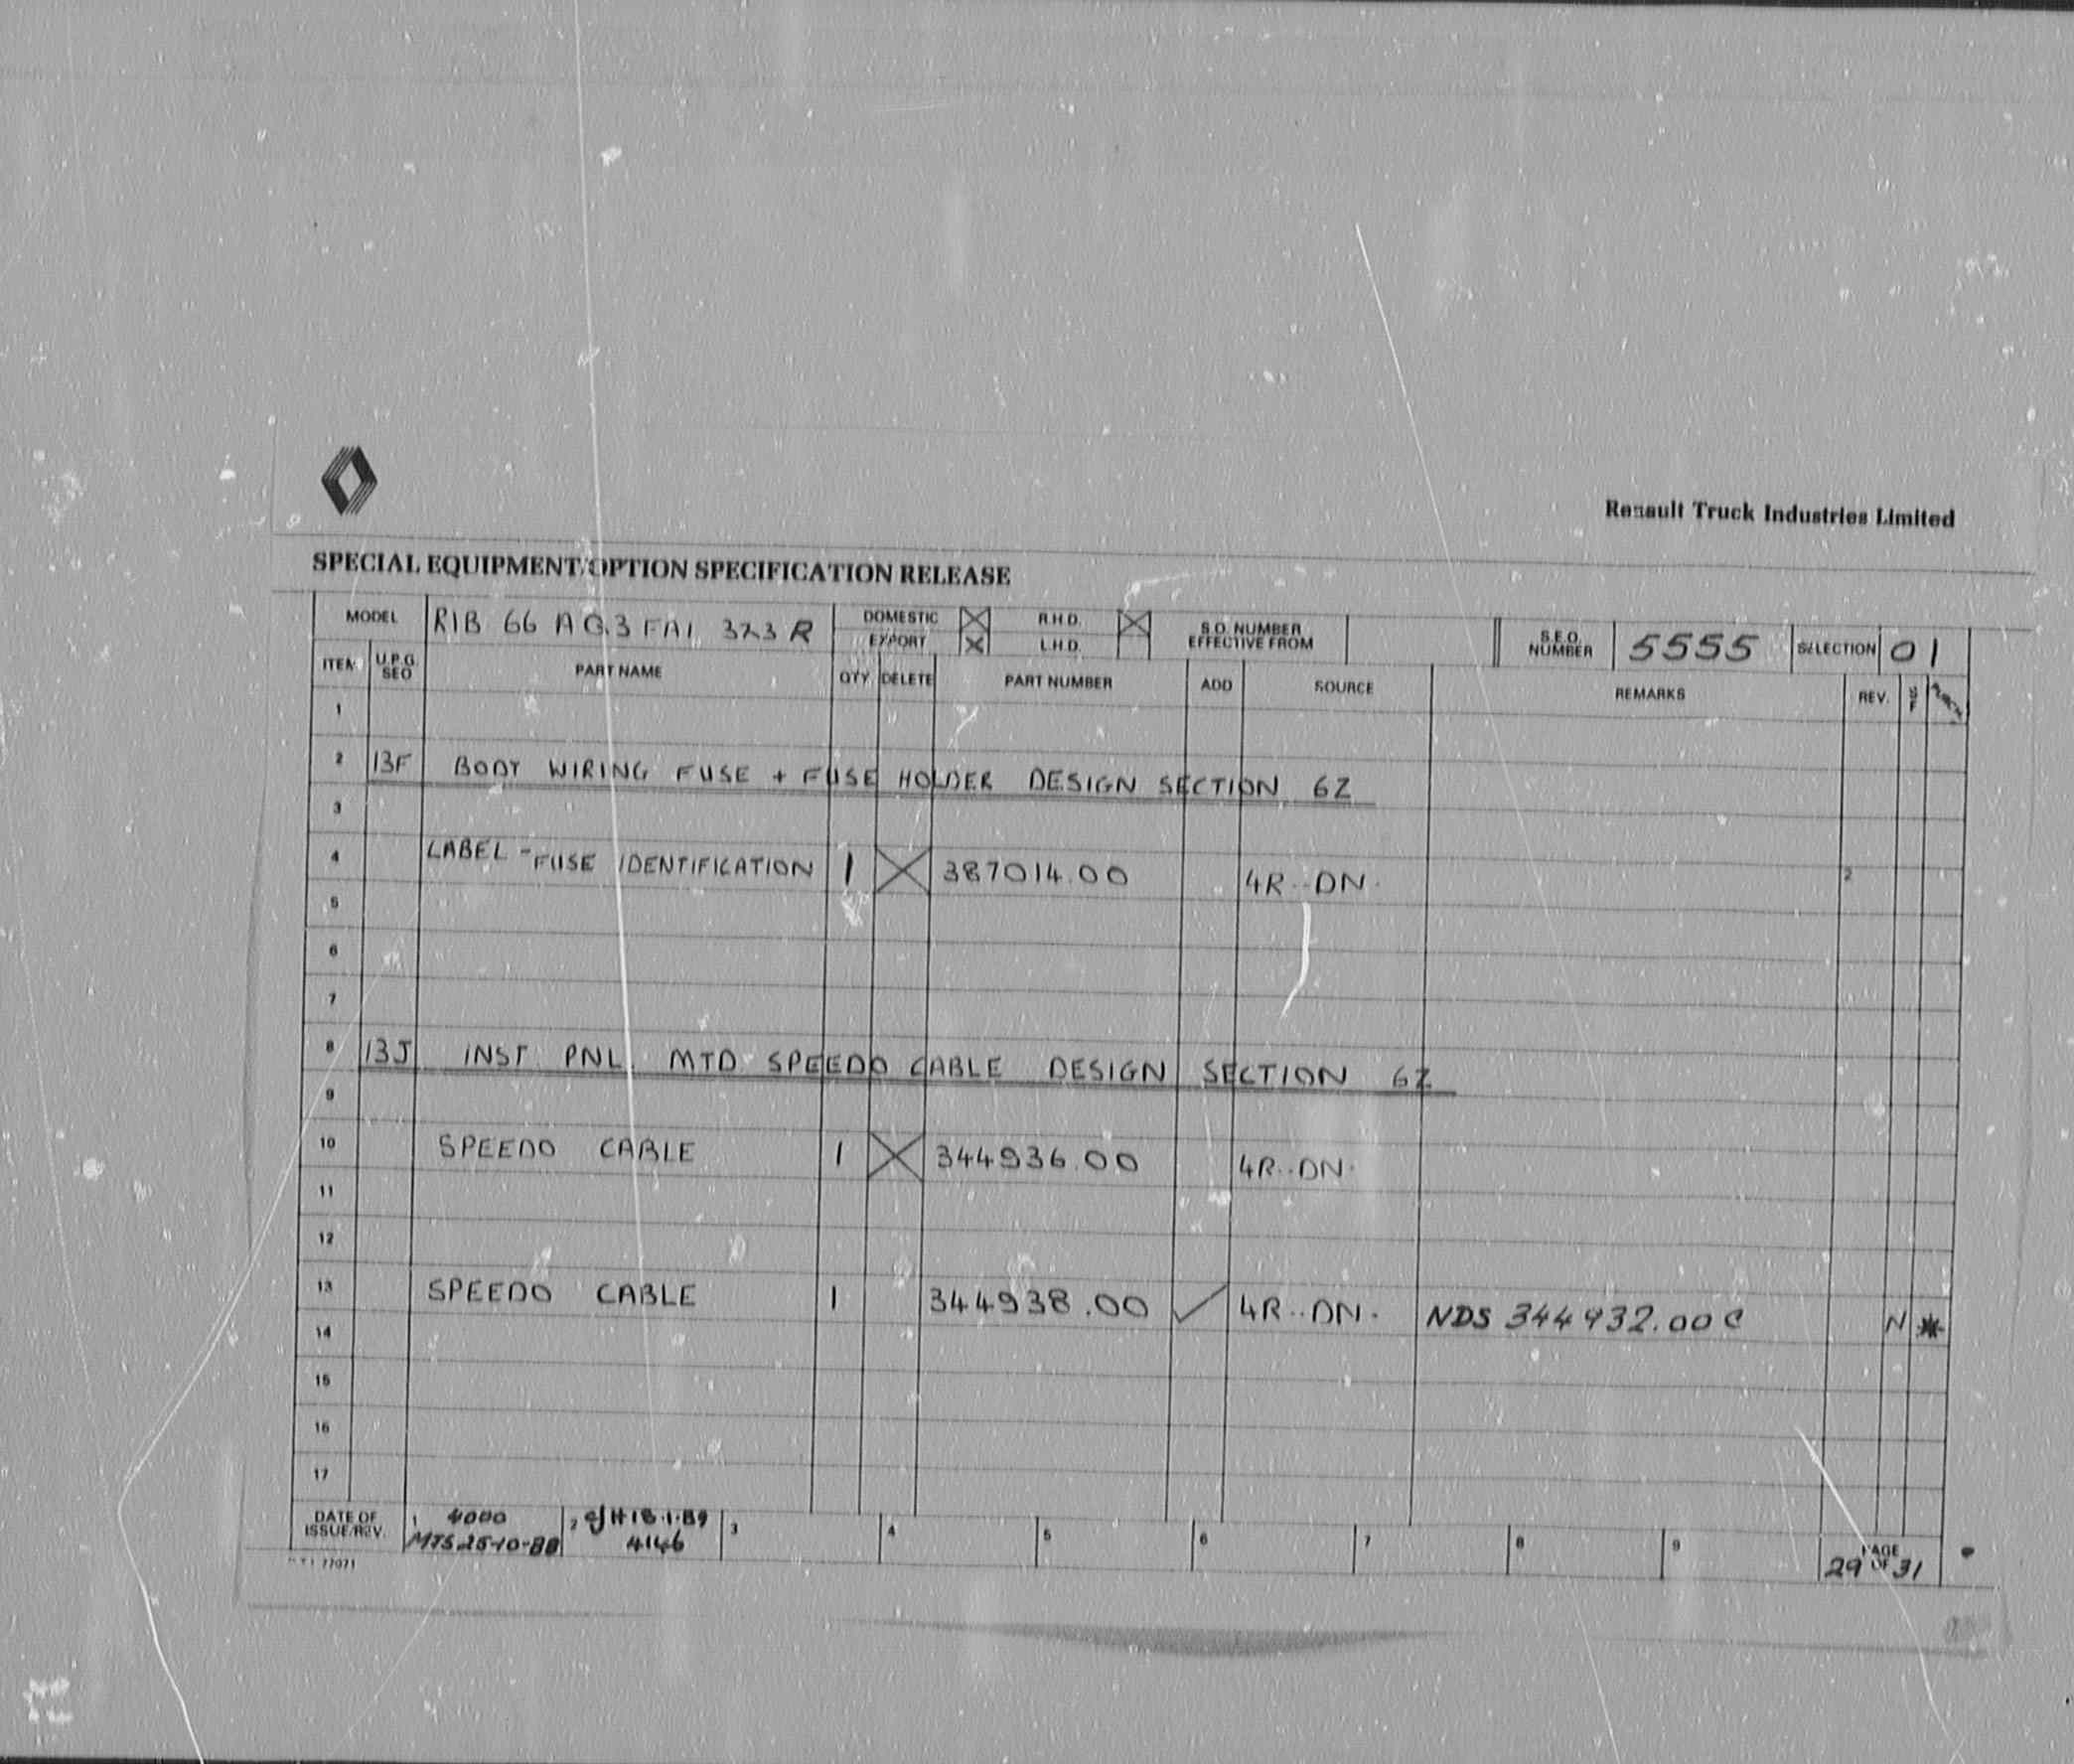 Renault Truck Industries Limited
SPECIAL EQUIPMENT/OPTION SPECIFICATION RELEASE
MODEL R1B 66 A G.3 FA1 323 R DOMESTIC X R.H.D. X S.O. NUMBER EFFECTIVE FROM S.E.O. NUMBER 5555 SELECTION 01
EXPORT X L.H.D.
ITEM U.P.G. SEQ PART NAME QTY DELETE PART NUMBER ADD SOURCE REMARKS REV.
1
2 13F BODY WIRING FUSE + FUSE HOLDER DESIGN SECTION 6Z
3
4 LABEL - FUSE IDENTIFICATION 1 X 387014.00 4R..DN. 2
5
6
7
8 13J INST PNL MTD SPEEDO CABLE DESIGN SECTION 6Z
9
10 SPEEDO CABLE 1 X 344936.00 4R..DN.
11
12
13 SPEEDO CABLE 1 344938.00 ✓ 4R..DN. NDS 344932.00 C N *
14
15
16
17
DATE OF ISSUE/REV. 1 4000 2 18.1.89 3 4 5 6 7 8 9 PAGE
MTS 25-10-88 4146 29 OF 31
77071